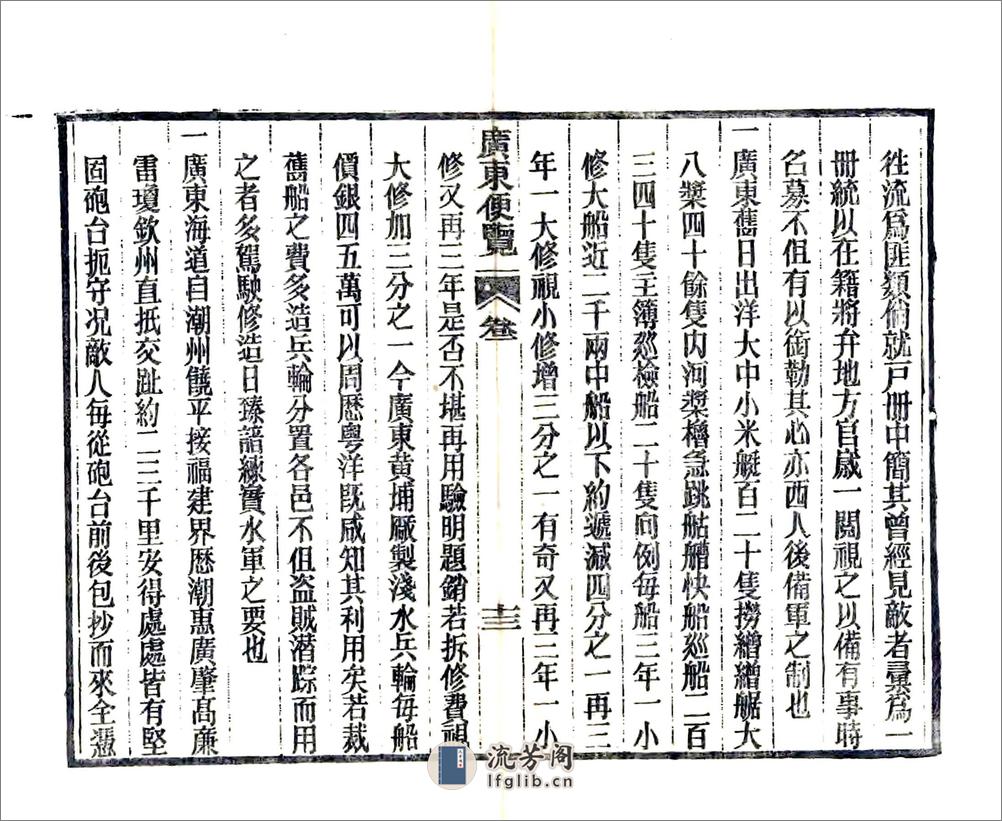 徃流爲匪類倘就戸冊中簡其曾經見敵者彚爲一
冊統以在籍將弁地方官歲一閲視之以備有事時
名募不但有以銜勒其心亦西人後備軍之制也
一廣東舊日出洋大中小米艇百二十隻撈繒繒艍大
八槳四十餘隻内河槳櫓急跳舡艚快船廵船二百
三四十隻主簿廵檢船二十隻向例每船三年一小
修大船近二千兩中船以下約遞減四分之一再三
年一大修視小修增三分之一有奇又再三年一小
廣東便覽 卷 十三
修又再三年是否不堪再用驗明題銷若拆修費視
大修加三分之一今廣東黄埔厰製淺水兵輪每船
價銀四五萬可以周歷粵洋旣咸知其利用矣若裁
舊船之費多造兵輪分置各邑不但盗賊潛踪而用
之者多駕駛修造日臻諳練實水軍之要也
一廣東海道自潮州饒平接福建界歷潮惠廣肇高廉
雷瓊欽州直抵交趾約二三千里安得處處皆有堅
固砲台扼守况敵人每從砲台前後包抄而來全憑
流芳阁
lfglib.cn